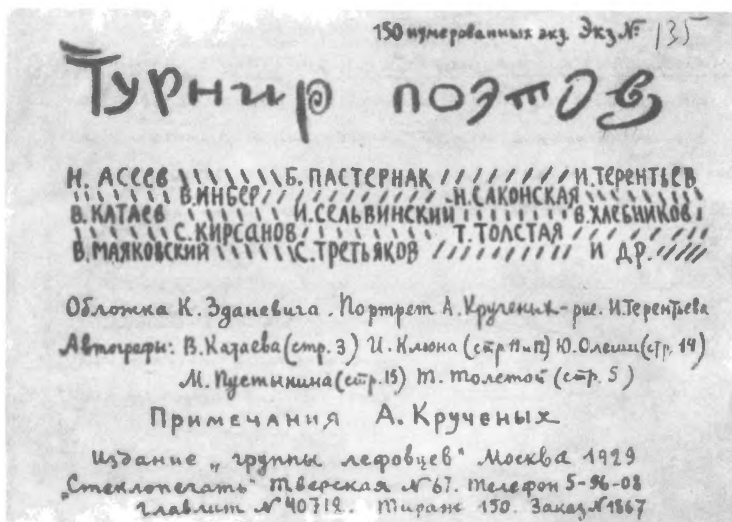 150 нумерованных экз. Экз. № 135
Турнир поэтов
Н. АСЕЕВ Б. ПАСТЕРНАК И. ТЕРЕНТЬЕВ
В. ИНБЕР Н. САКОНСКАЯ
В. КАТАЕВ И. СЕЛЬВИНСКИЙ В. ХЛЕБНИКОВ
С. КИРСАНОВ Т. ТОЛСТАЯ
В. МАЯКОВСКИЙ С. ТРЕТЬЯКОВ И ДР.
Обложка К. Зданевича. Портрет А. Крученых - рис. И. Терентьева
Автографы: В. Катаева (стр. 3) И. Клюна (стр. 11 и 12) Ю. Олеши (стр. 14)
М. Пустынина (стр. 15) Т. Толстой (стр. 5)
Примечания А. Крученых
Издание „группы лефовцев" Москва 1929
„Стеклопечать" Тверская № 67. Телефон 5-96-08
Главлит № 40718. Тираж 150. Заказ № 1867